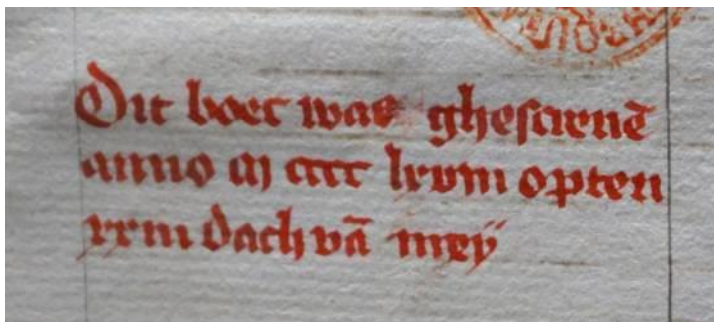 Dit boec was ghescreuē
anno m cccc lxviii opten
xxiii dach vā meÿ